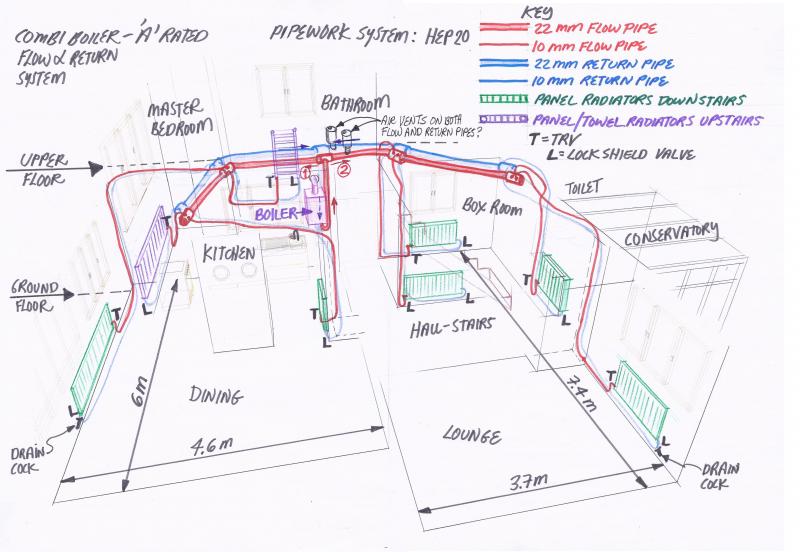 COMBI BOILER - 'A' RATED
FLOW & RETURN
SYSTEM
PIPEWORK SYSTEM: HEP 20
KEY
22 mm FLOW PIPE
10 mm FLOW PIPE
22 mm RETURN PIPE
10 mm RETURN PIPE
PANEL RADIATORS DOWNSTAIRS
PANEL/TOWEL RADIATORS UPSTAIRS
T = TRV
L = LOCK SHIELD VALVE
MASTER
BEDROOM
BATHROOM
AIR VENTS ON BOTH
FLOW AND RETURN PIPES?
UPPER
FLOOR
1
2
T L
BOILER
TOILET
BOX ROOM
CONSERVATORY
KITCHEN
T
L
T
L
T
L
GROUND
FLOOR
T
L
T
L
HALL-STAIRS
T
L
T
L
DRAIN
COCK
6m
DINING
4.6m
7.4m
LOUNGE
3.7m
T
L
DRAIN
COCK